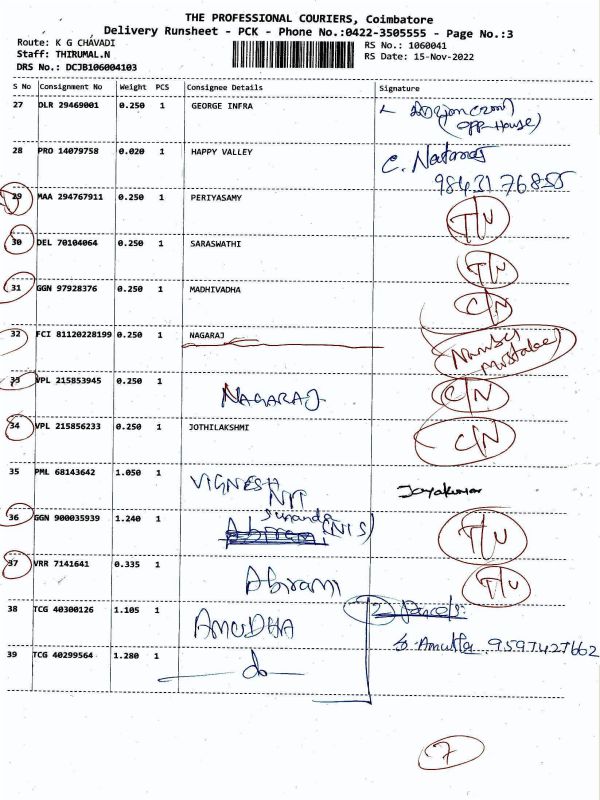 THE PROFESSIONAL COURIERS, Coimbatore
Delivery Runsheet - PCK - Phone No.:0422-3505555 - Page No.:3
Route: K G CHAVADI
RS No.: 1060041
Staff: THIRUMAL.N
RS Date: 15-Nov-2022
DRS No.: DCJB106004103
S No Consignment No Weight PCS Consignee Details Signature
27 DLR 29469001 0.250 1 GEORGE INFRA
(opp-House)
28 PRO 14079758 0.020 1 HAPPY VALLEY C. Natara
98431 76855
29 MAA 294767911 0.250 1 PERIYASAMY T/U
30 DEL 70104064 0.250 1 SARASWATHI T/U
31 GGN 97928376 0.250 1 MADHIVADHA C/N
32 FCI 81120228199 0.250 1 NAGARAJ Number
mistake
33 VPL 215853945 0.250 1 NAGARAJ C/N
34 VPL 215856233 0.250 1 JOTHILAKSHMI C/N
35 PML 68143642 1.050 1 VIGNESH Jayakumar
NIT
36 GGN 900035939 1.240 1 (NIS) T/U
37 VRR 7141641 0.335 1 Abirami T/U
38 TCG 40300126 1.105 1 AMUDHA 2
9597427662
39 TCG 40299564 1.280 1 do
7